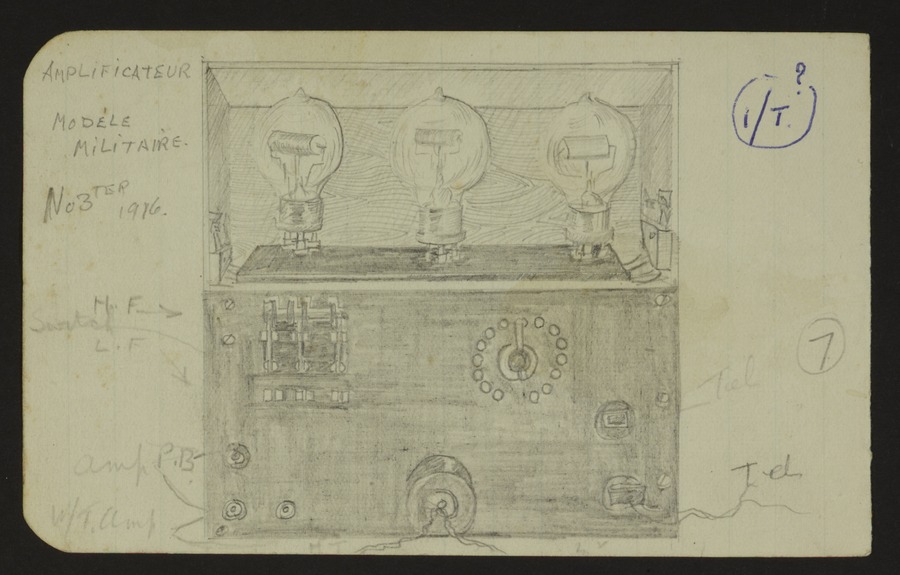 AMPLIFICATEUR
MODÈLE
MILITAIRE.
No 3TER
1916.
?
I/T.
H. F.
Switch
L. F
7
Tel
Amp P.B
Tel
W/T. Amp